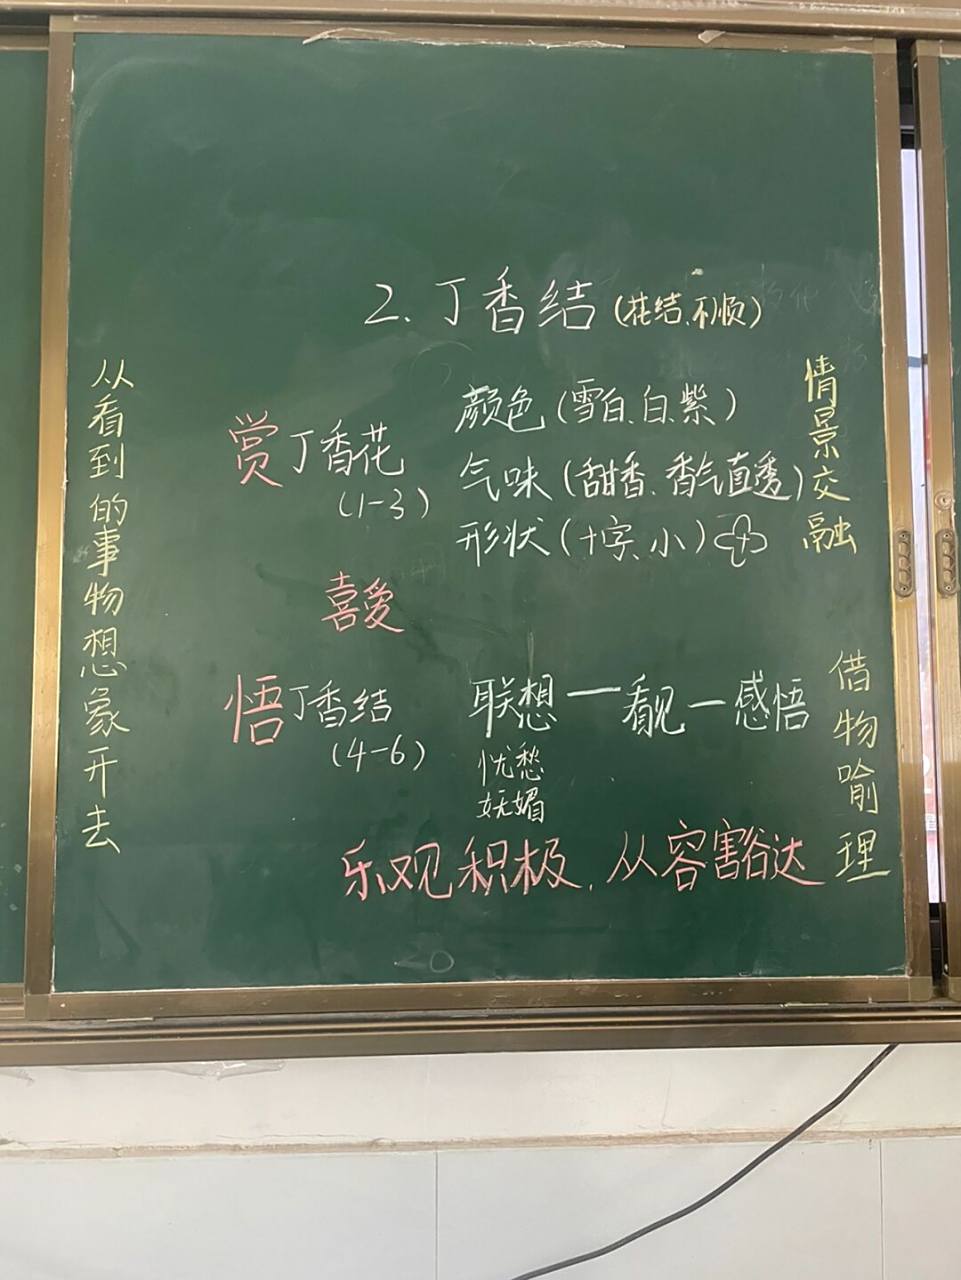 2.丁香结(花结、不顺)
从看到的事物想象开去
赏丁香花
(1-3)
颜色(雪白、白、紫)
气味(甜香、香气直透)
形状(十字、小)
喜爱
悟丁香结
(4-6)
联想一看见一感悟
忧愁
妩媚
乐观积极,从容豁达
情景交融
借物喻理